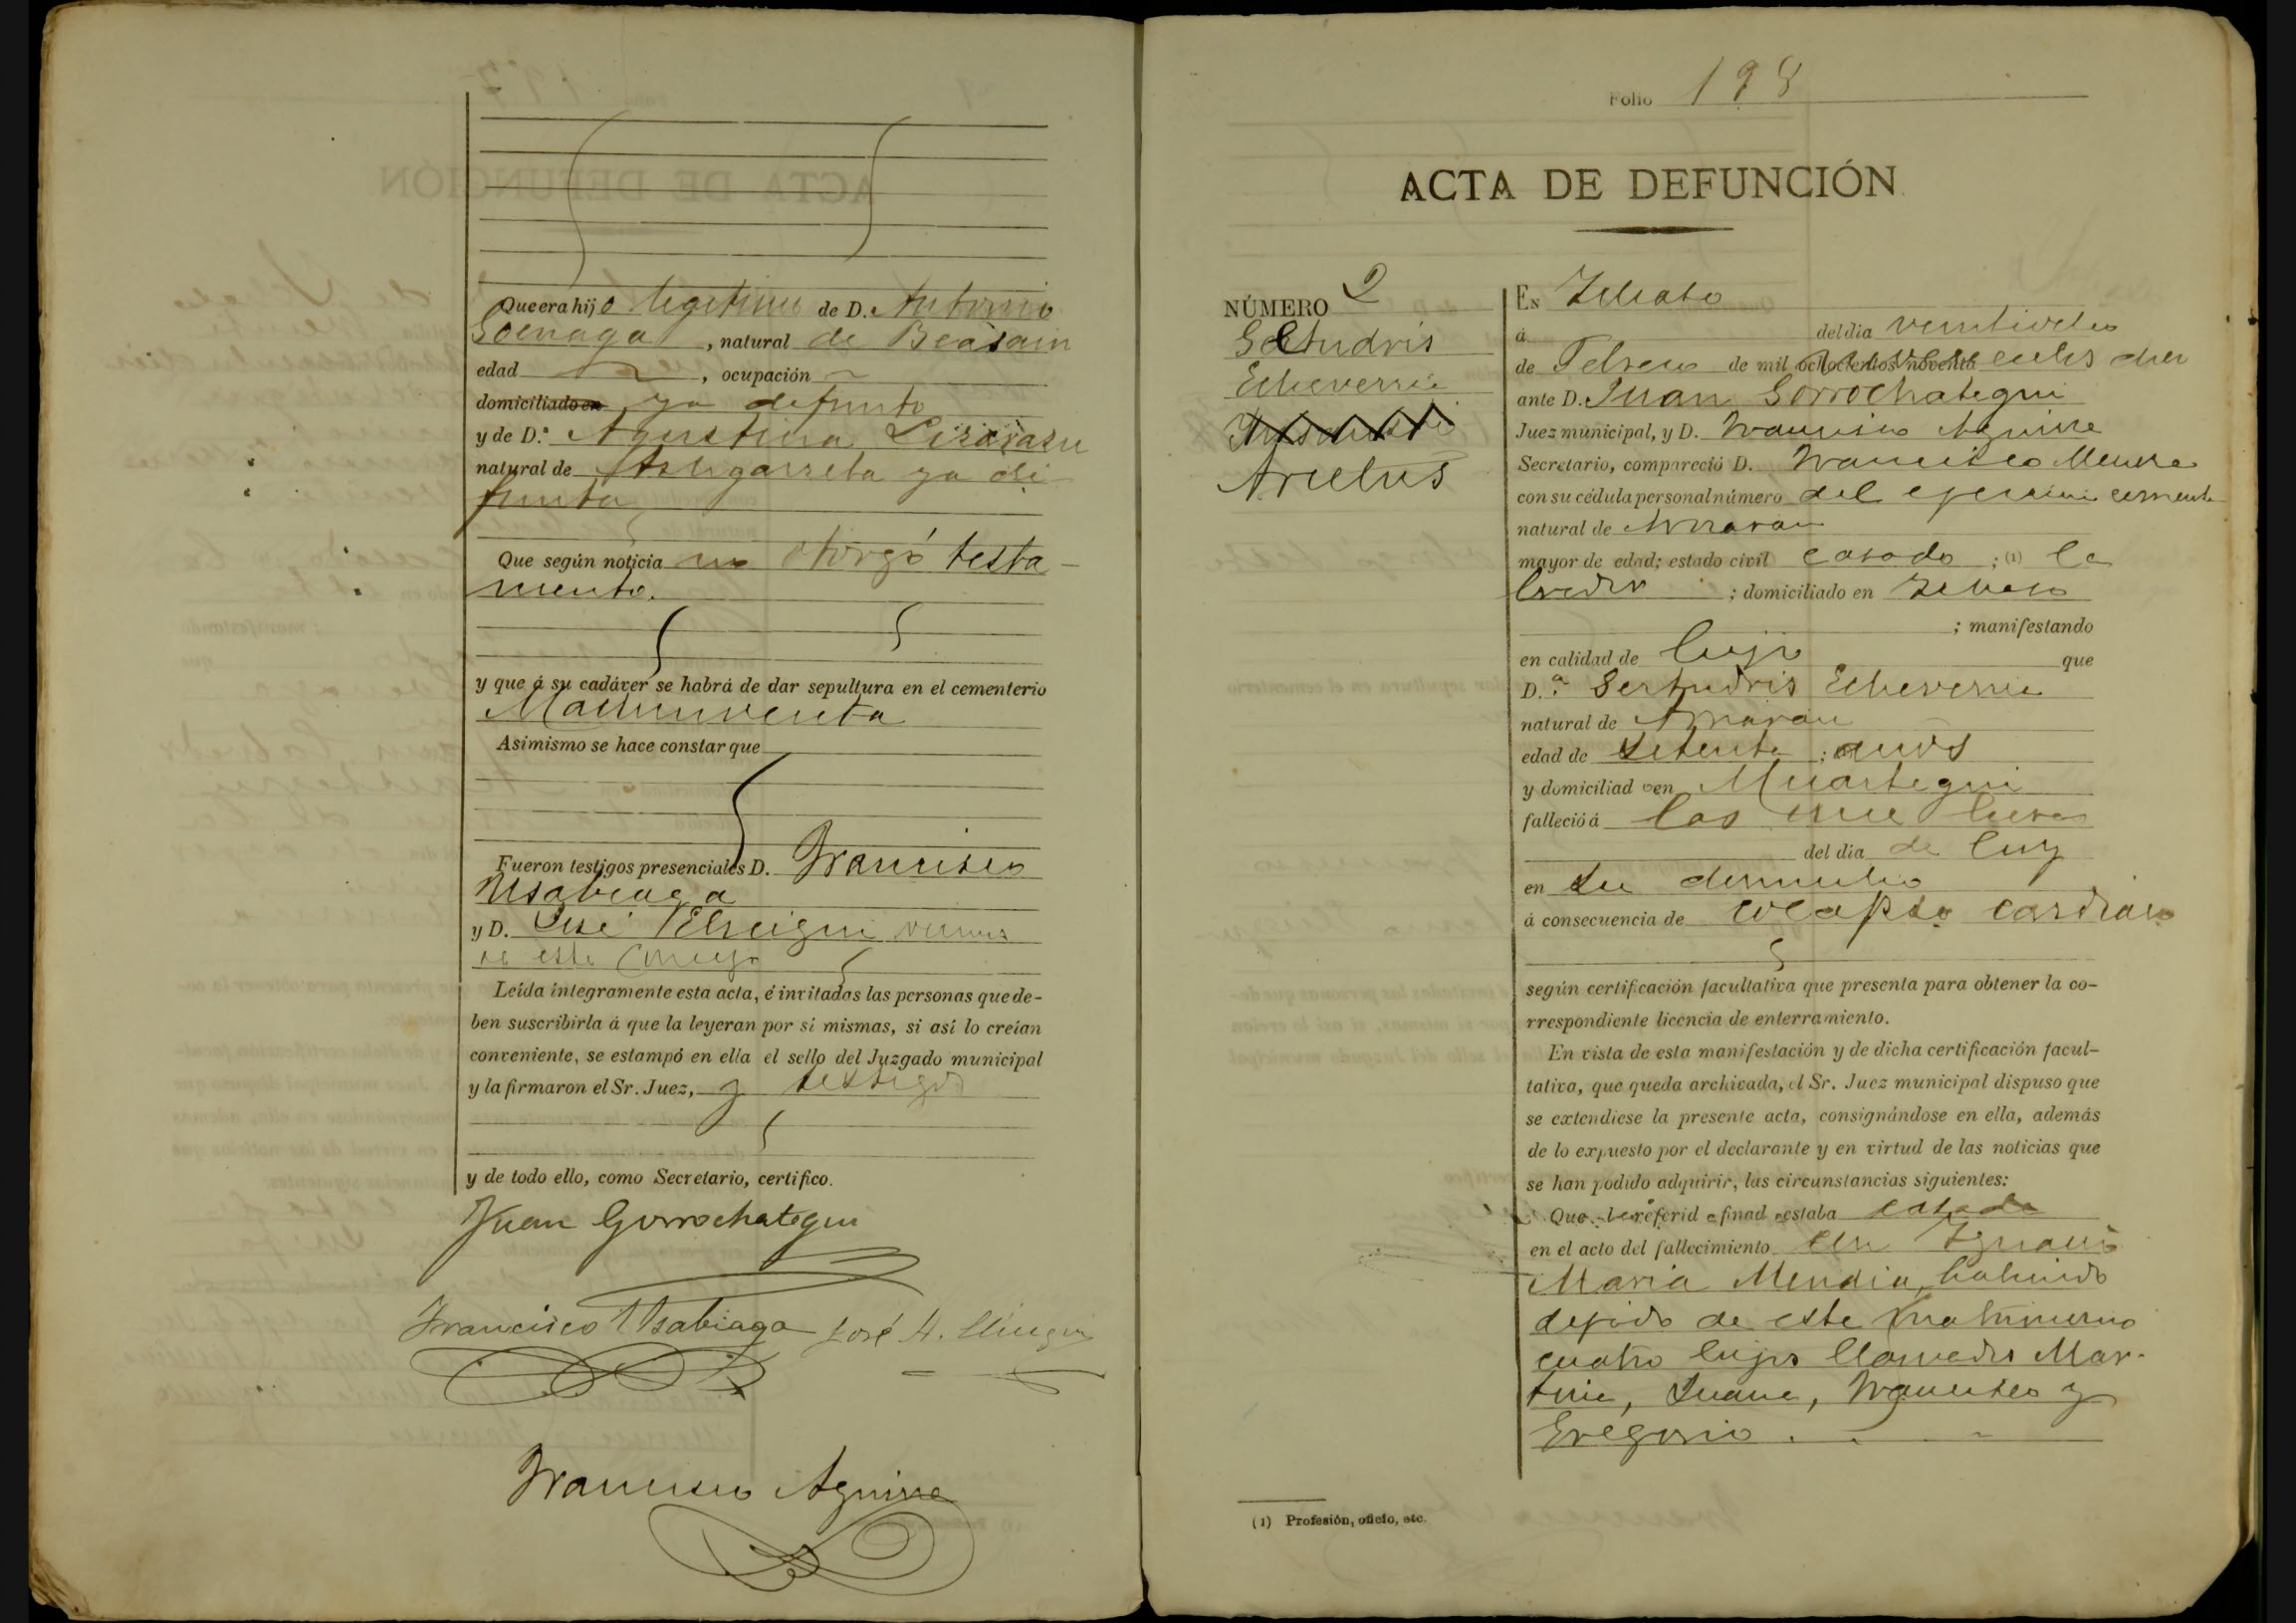 Que era hijo legitimo de D. Antonio
Goenaga, natural de Beasain
edad , ocupación
domiciliado en ya difunto
y de D.ª Agustina Lizarasu
natural de Astigarreta ya di-
funta
Que según noticia no otorgó testa-
mento.
y que á su cadáver se habrá de dar sepultura en el cementerio
Machinventa
Asimismo se hace constar que
Fueron testigos presenciales D. Francisco
Usabiaga
y D. José vecinos
de este
Leída íntegramente esta acta, é invitadas las personas que de-
ben suscribirla á que la leyeran por sí mismas, si así lo creían
conveniente, se estampó en ella el sello del Juzgado municipal
y la firmaron el Sr. Juez, y testigos
y de todo ello, como Secretario, certifico.
Juan Gorrochategui
Francisco Usabiaga José A.
Francisco Aguirre
Folio 198
ACTA DE DEFUNCIÓN
NÚMERO 2
Echeverria
En
á del dia
de Febrero de mil ochocientos noventa diez
ante D. Juan Gorrochategui
Juez municipal, y D. Francisco Aguirre
Secretario, compareció D. Francisco
con su cédula personal número del ejercicio corriente
natural de
mayor de edad; estado civil casado ; (1) la
brador ; domiciliado en
; manifestando
en calidad de hijo que
D.ª Gertrudris Echeverria
natural de
edad de setenta ; años
y domiciliado en
falleció á las horas
del dia de hoy
en su domicilio
á consecuencia de colapso cardiaco
según certificación facultativa que presenta para obtener la co-
rrespondiente licencia de enterramiento.
En vista de esta manifestación y de dicha certificación facul-
tativa, que queda archivada, el Sr. Juez municipal dispuso que
se extendiese la presente acta, consignándose en ella, además
de lo expuesto por el declarante y en virtud de las noticias que
se han podido adquirir, las circunstancias siguientes:
Que la referida finada estaba casada
en el acto del fallecimiento con Ignacio
Maria Mendia, habiendo
dejado de este matrimonio
cuatro hijos llamados Mar-
tina, Juana, Francisco y
Gregorio.
(1) Profesión, oficio, etc.